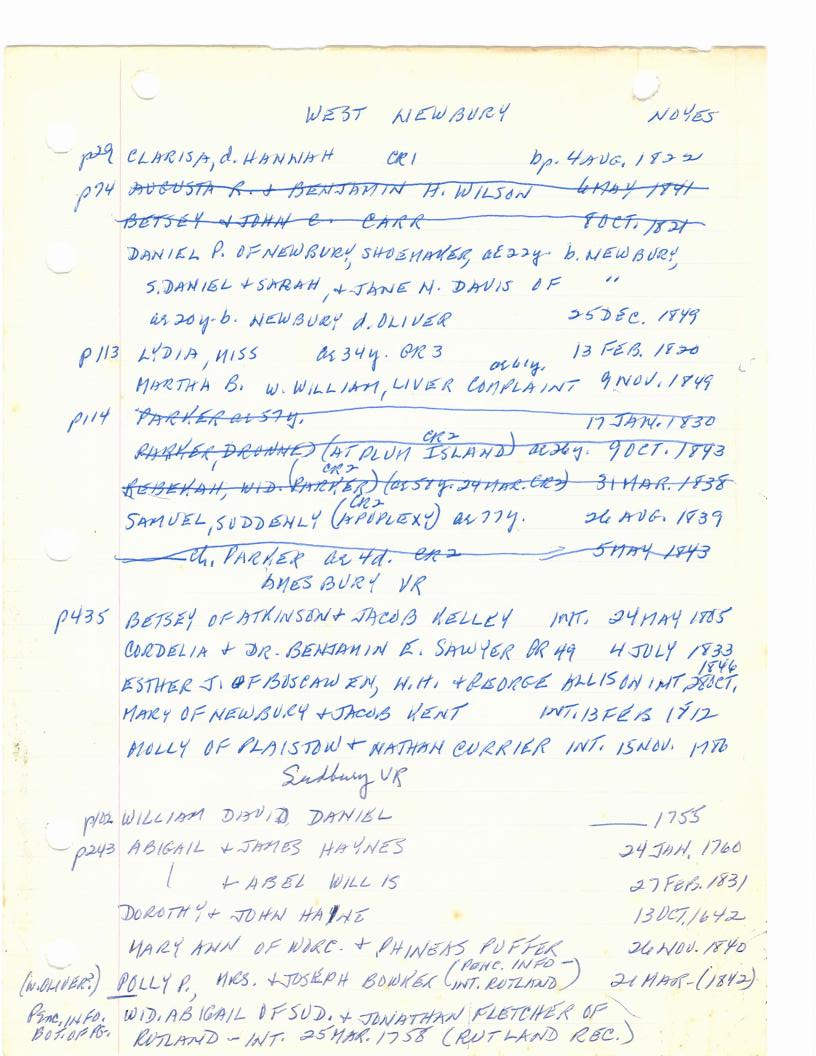 WEST NEWBURY NOYES
p29 CLARISA, d. HANNAH CR1 bp. 4 AUG. 1822
p74 AUGUSTA R. + BENJAMIN H. WILSON 6 MAY 1841
BETSEY + JOHN C. CARR 8 OCT. 1821
DANIEL P. OF NEWBURY, SHOEMAKER, ae 22y. b. NEWBURY,
S. DANIEL + SARAH, + JANE N. DAVIS OF "
ae 20y. b. NEWBURY d. OLIVER 25 DEC. 1849
p113 LYDIA, MISS ae 34y. GR3 13 FEB. 1820
MARTHA B. w. WILLIAM, LIVER COMPLAINT ae 61y. 9 NOV. 1849
p114 PARKER ae 57y. 17 JAN. 1830
PARKER, DROWNED (AT PLUM ISLAND) CR2 ae 26y. 9 OCT. 1843
REBEKAH, WID. (PARKER) CR2 (ae 58y. 24 MAR. CR2) 31 MAR. 1838
SAMUEL, SUDDENLY (APOPLEXY) CR2 ae 77y. 26 AUG. 1839
ch. PARKER ae 4d. CR2 5 MAY 1843
AMESBURY VR
p435 BETSEY OF ATKINSON + JACOB KELLEY INT. 24 MAY 1805
CORDELIA + DR. BENJAMIN E. SAWYER GR 49 4 JULY 1833
ESTHER J. OF BUSCAWEN, N.H. + GEORGE ALLISON INT. 28 OCT. 1846
MARY OF NEWBURY + JACOB KENT INT. 13 FEB 1812
MOLLY OF PLAISTOW + NATHAN CURRIER INT. 15 NOV. 1786
Sudbury VR
p102 WILLIAM DAVID, DANIEL 1755
p243 ABIGAIL + JAMES HAYNES 24 JAN. 1760
+ ABEL WILLIS 27 FEB. 1831
DOROTHY + JOHN HAYNE 13 OCT. 1642
MARY ANN OF WORC. + PHINEAS PUFFER 26 NOV. 1840
(W. OLIVER?) POLLY P., MRS. + JOSEPH BOWKER (PENC. INFO - INT. RUTLAND) 21 MAR - (1842)
PENC. INFO. WID. ABIGAIL OF SUD. + JONATHAN FLETCHER OF
BOT. OF PG. RUTLAND - INT. 25 MAR. 1758 (RUTLAND REC.)